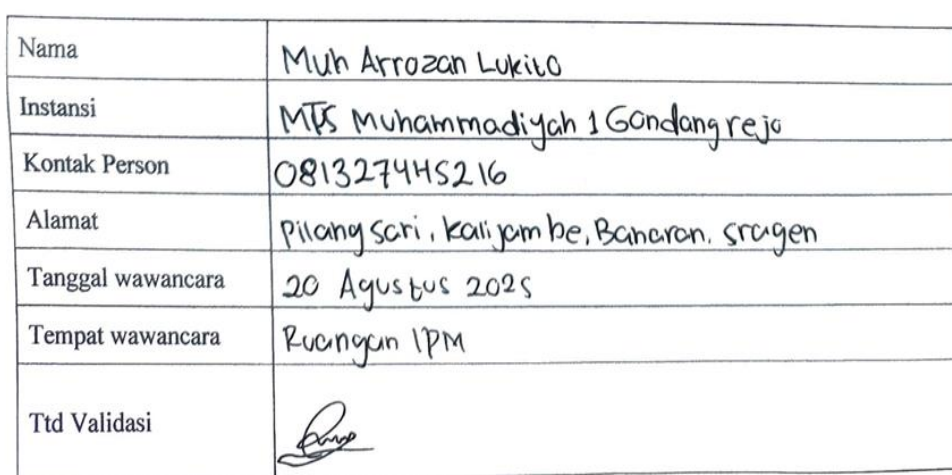 Nama Muh Arrozan Lukito
Instansi MTs Muhammadiyah 1 Gondangrejo
Kontak Person 081327445216
Alamat Pilang sari, kalijambe, Banaran, sragen
Tanggal wawancara 20 Agustus 2025
Tempat wawancara Ruangan IPM
Ttd Validasi